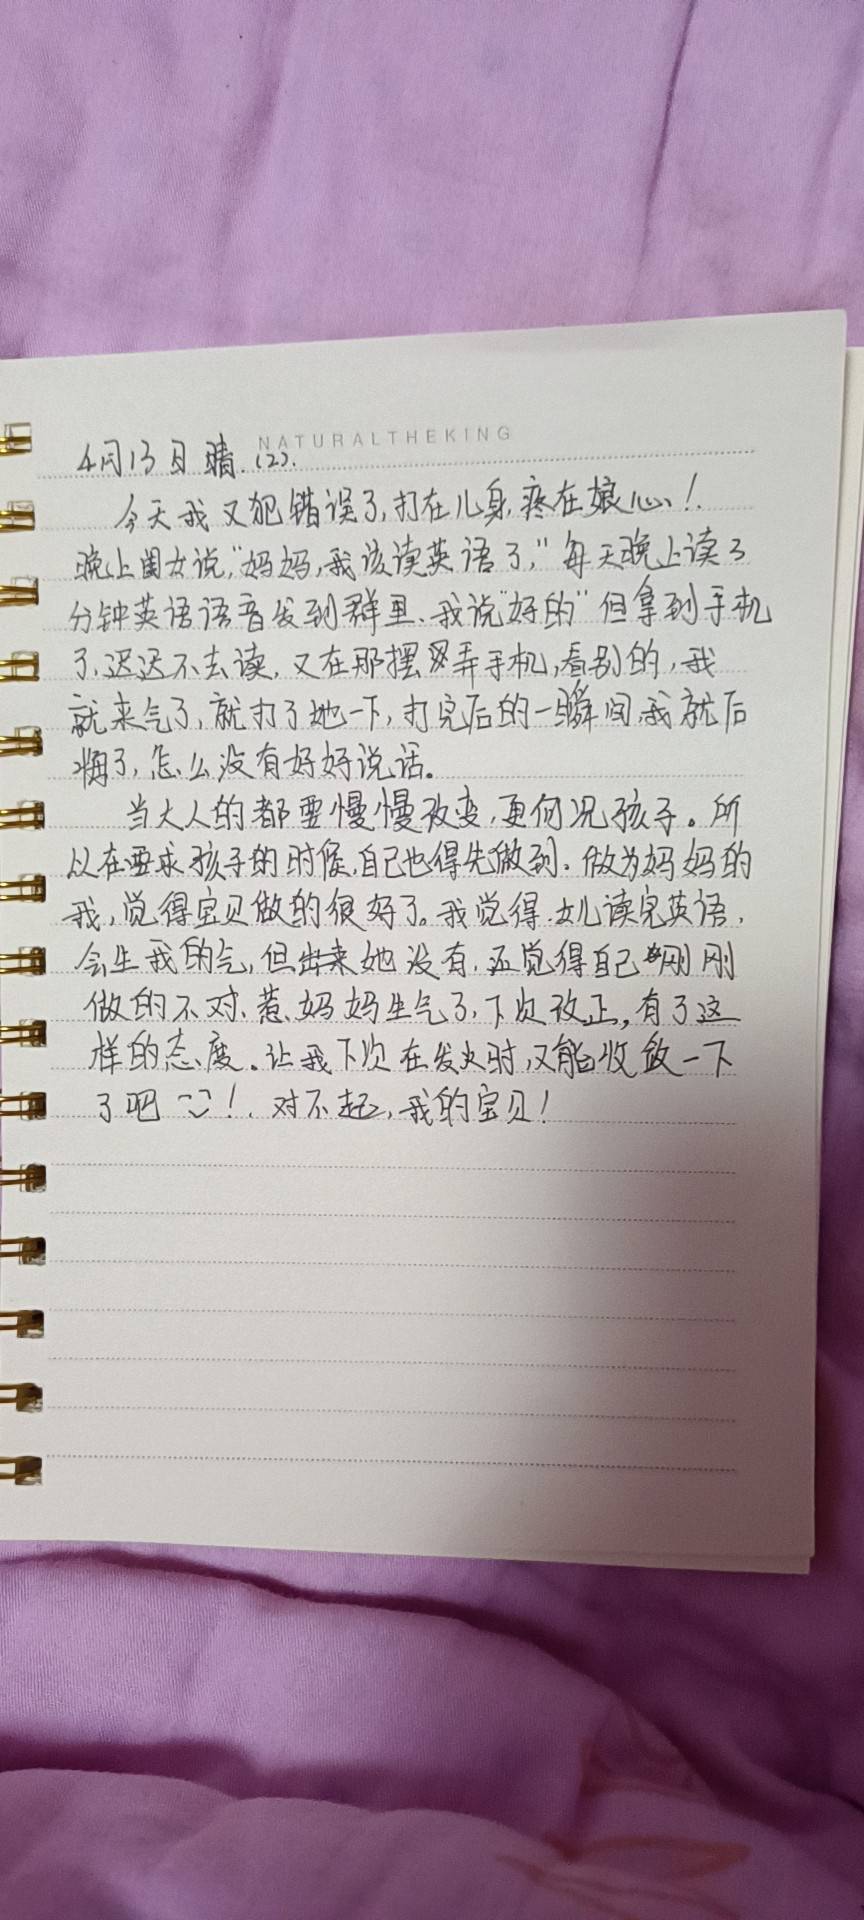 NATURALTHEKING
4月13日 晴.(2).
今天我又犯错误了,打在儿身,疼在娘心、!.
晚上闺女说,"妈妈,我该读英语了,"每天晚上读3
分钟英语语音发到群里、我说"好的"但拿到手机
了,迟迟不去读,又在那摆弄手机,看别的,我
就来气了,就打了她一下,打完后的一瞬间,我就后
悔了,怎么没有好好说话。
当大人的都要慢慢改变,更何况孩子。所
以在要求孩子的时候,自己也得先做到.做为妈妈的
我,觉得宝贝做的很好了。我觉得.女儿读完英语,
会生我的气,但出来她没有,还觉得自己刚刚
做的不对、惹、妈妈生气了,下次改正,有了这
样的态度。让我下次在发火时,又能收敛一下
了吧!.对不起,我的宝贝!